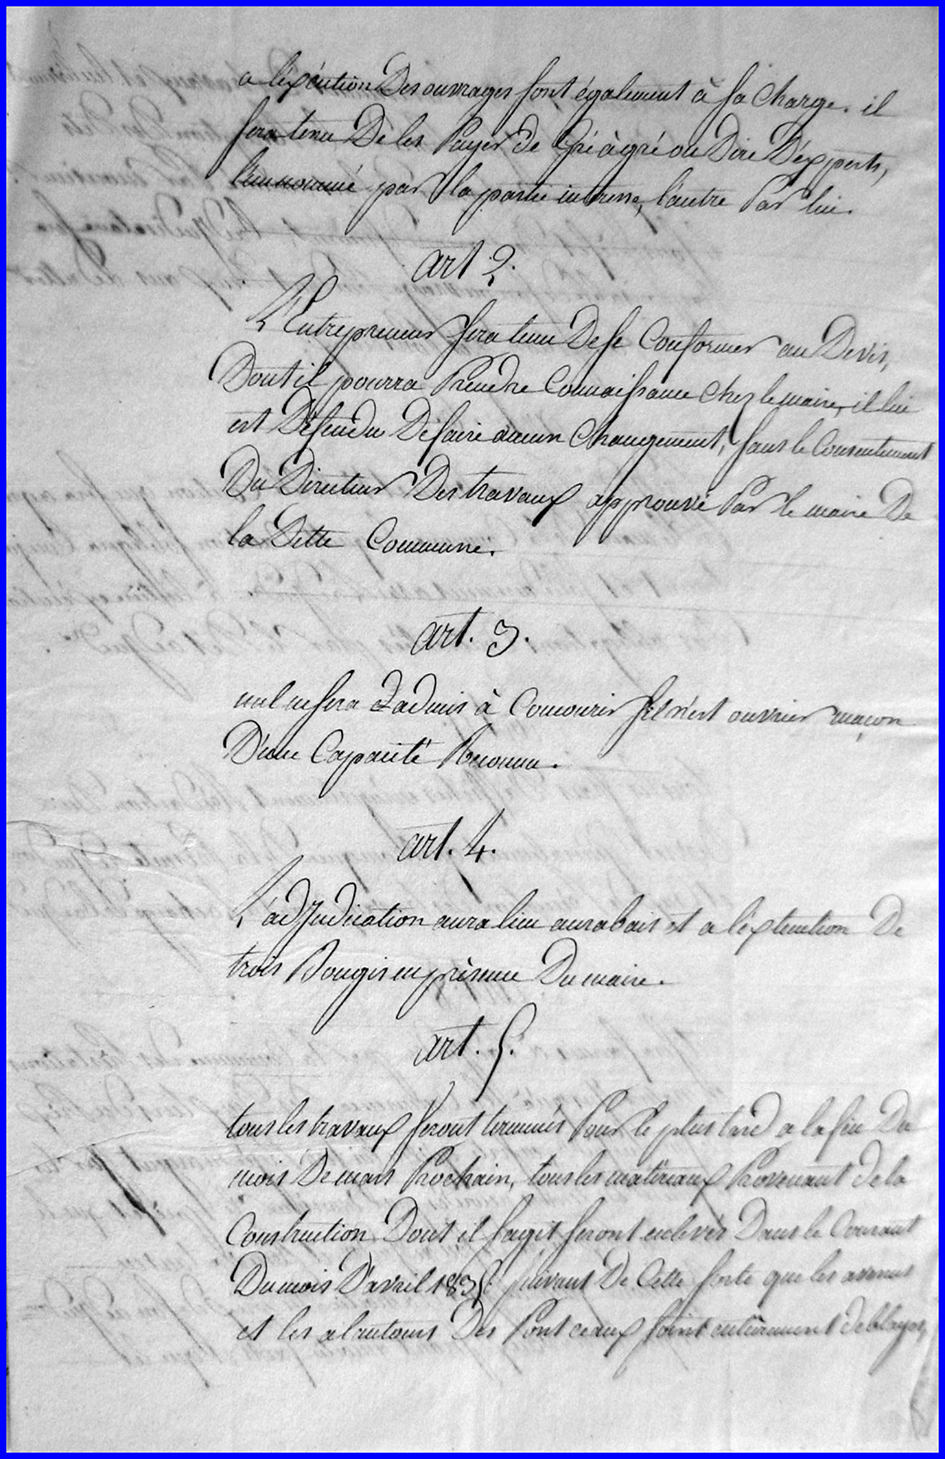 a l'exécution Des ouvrages sont également à sa charge. il
sera tenu De les Payer de Gré à gré ou Dire D'experts,
l'un nommé par la partie intéressé, l'autre Par lui.
art 2.
L'Entrepreneur sera tenu De se Conformer au Devis,
Dont il pourra Prendre Connaissance chez le maire, il lui
est Défendu De faire aucun Changement, sans le Consentement
Du Directeur Des travaux approuvé Par le maire De
la Ditte Commune.
art. 3.
nul ne sera admis à Concourir s'il n'est ouvrier maçon
D'une Capacité Reconnu.
art. 4.
L'adjudication aura lieu au rabais et a l'extenction De
trois Bougis en présence Du maire.
art. 5.
tous les travaux seront terminés Pour le plus tard a la fin Du
mois De mars Prochain, tous les matériaux Provenant de la
Construction Dont il s'agit seront enlevés Dans le Courant
Du mois D'avril 1835 suivant De Cette sorte que les avenues
et les alentours Des Ponceaux soint entièrement déblayés,